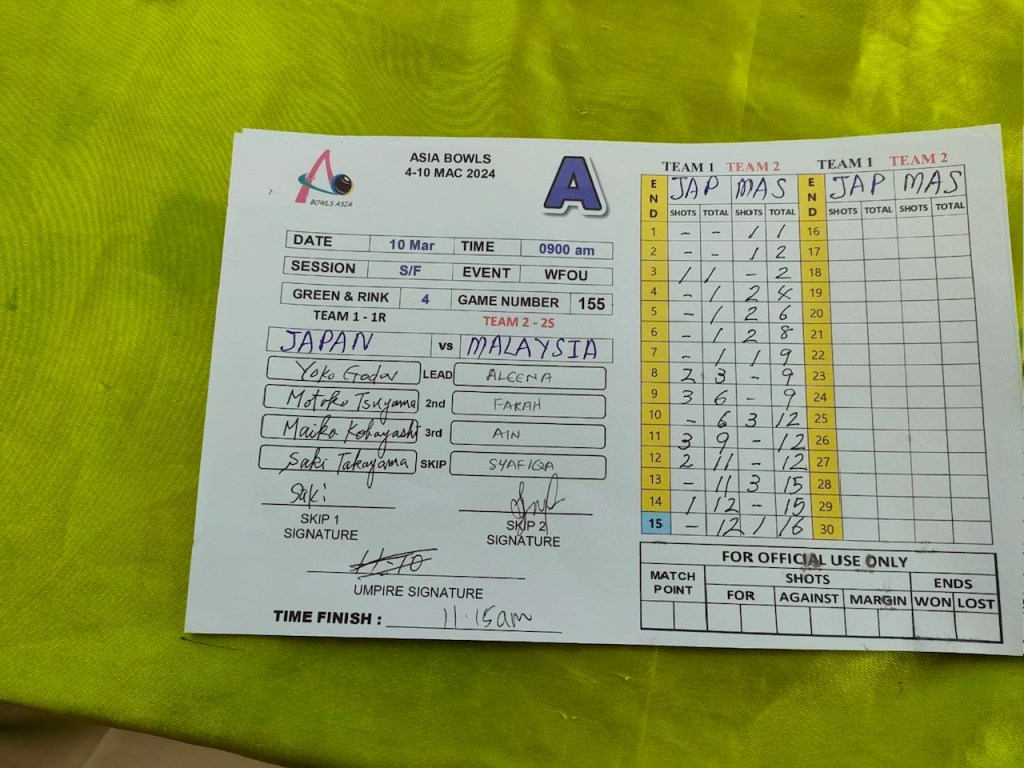 BOWLS ASIA
ASIA BOWLS
4-10 MAC 2024
A
DATE 10 Mar TIME 0900 am
SESSION S/F EVENT WFOU
GREEN & RINK 4 GAME NUMBER 155
TEAM 1 - 1R TEAM 2 - 2S
JAPAN vs MALAYSIA
Yoko Goda LEAD ALEENA
Motoko Tsuyama 2nd FARAH
Maiko Kobayashi 3rd AIN
Saki Takayama SKIP SYAFIQA
Saki
SKIP 1 SKIP 2
SIGNATURE SIGNATURE
11.10
UMPIRE SIGNATURE
TIME FINISH : 11.15am
TEAM 1 TEAM 2 TEAM 1 TEAM 2
END JAP MAS END JAP MAS
SHOTS TOTAL SHOTS TOTAL SHOTS TOTAL SHOTS TOTAL
1 - - 1 1 16
2 - - 1 2 17
3 1 1 - 2 18
4 - 1 2 4 19
5 - 1 2 6 20
6 - 1 2 8 21
7 - 1 1 9 22
8 2 3 - 9 23
9 3 6 - 9 24
10 - 6 3 12 25
11 3 9 - 12 26
12 2 11 - 12 27
13 - 11 3 15 28
14 1 12 - 15 29
15 - 12 1 16 30
FOR OFFICIAL USE ONLY
MATCH POINT SHOTS ENDS
FOR AGAINST MARGIN WON LOST